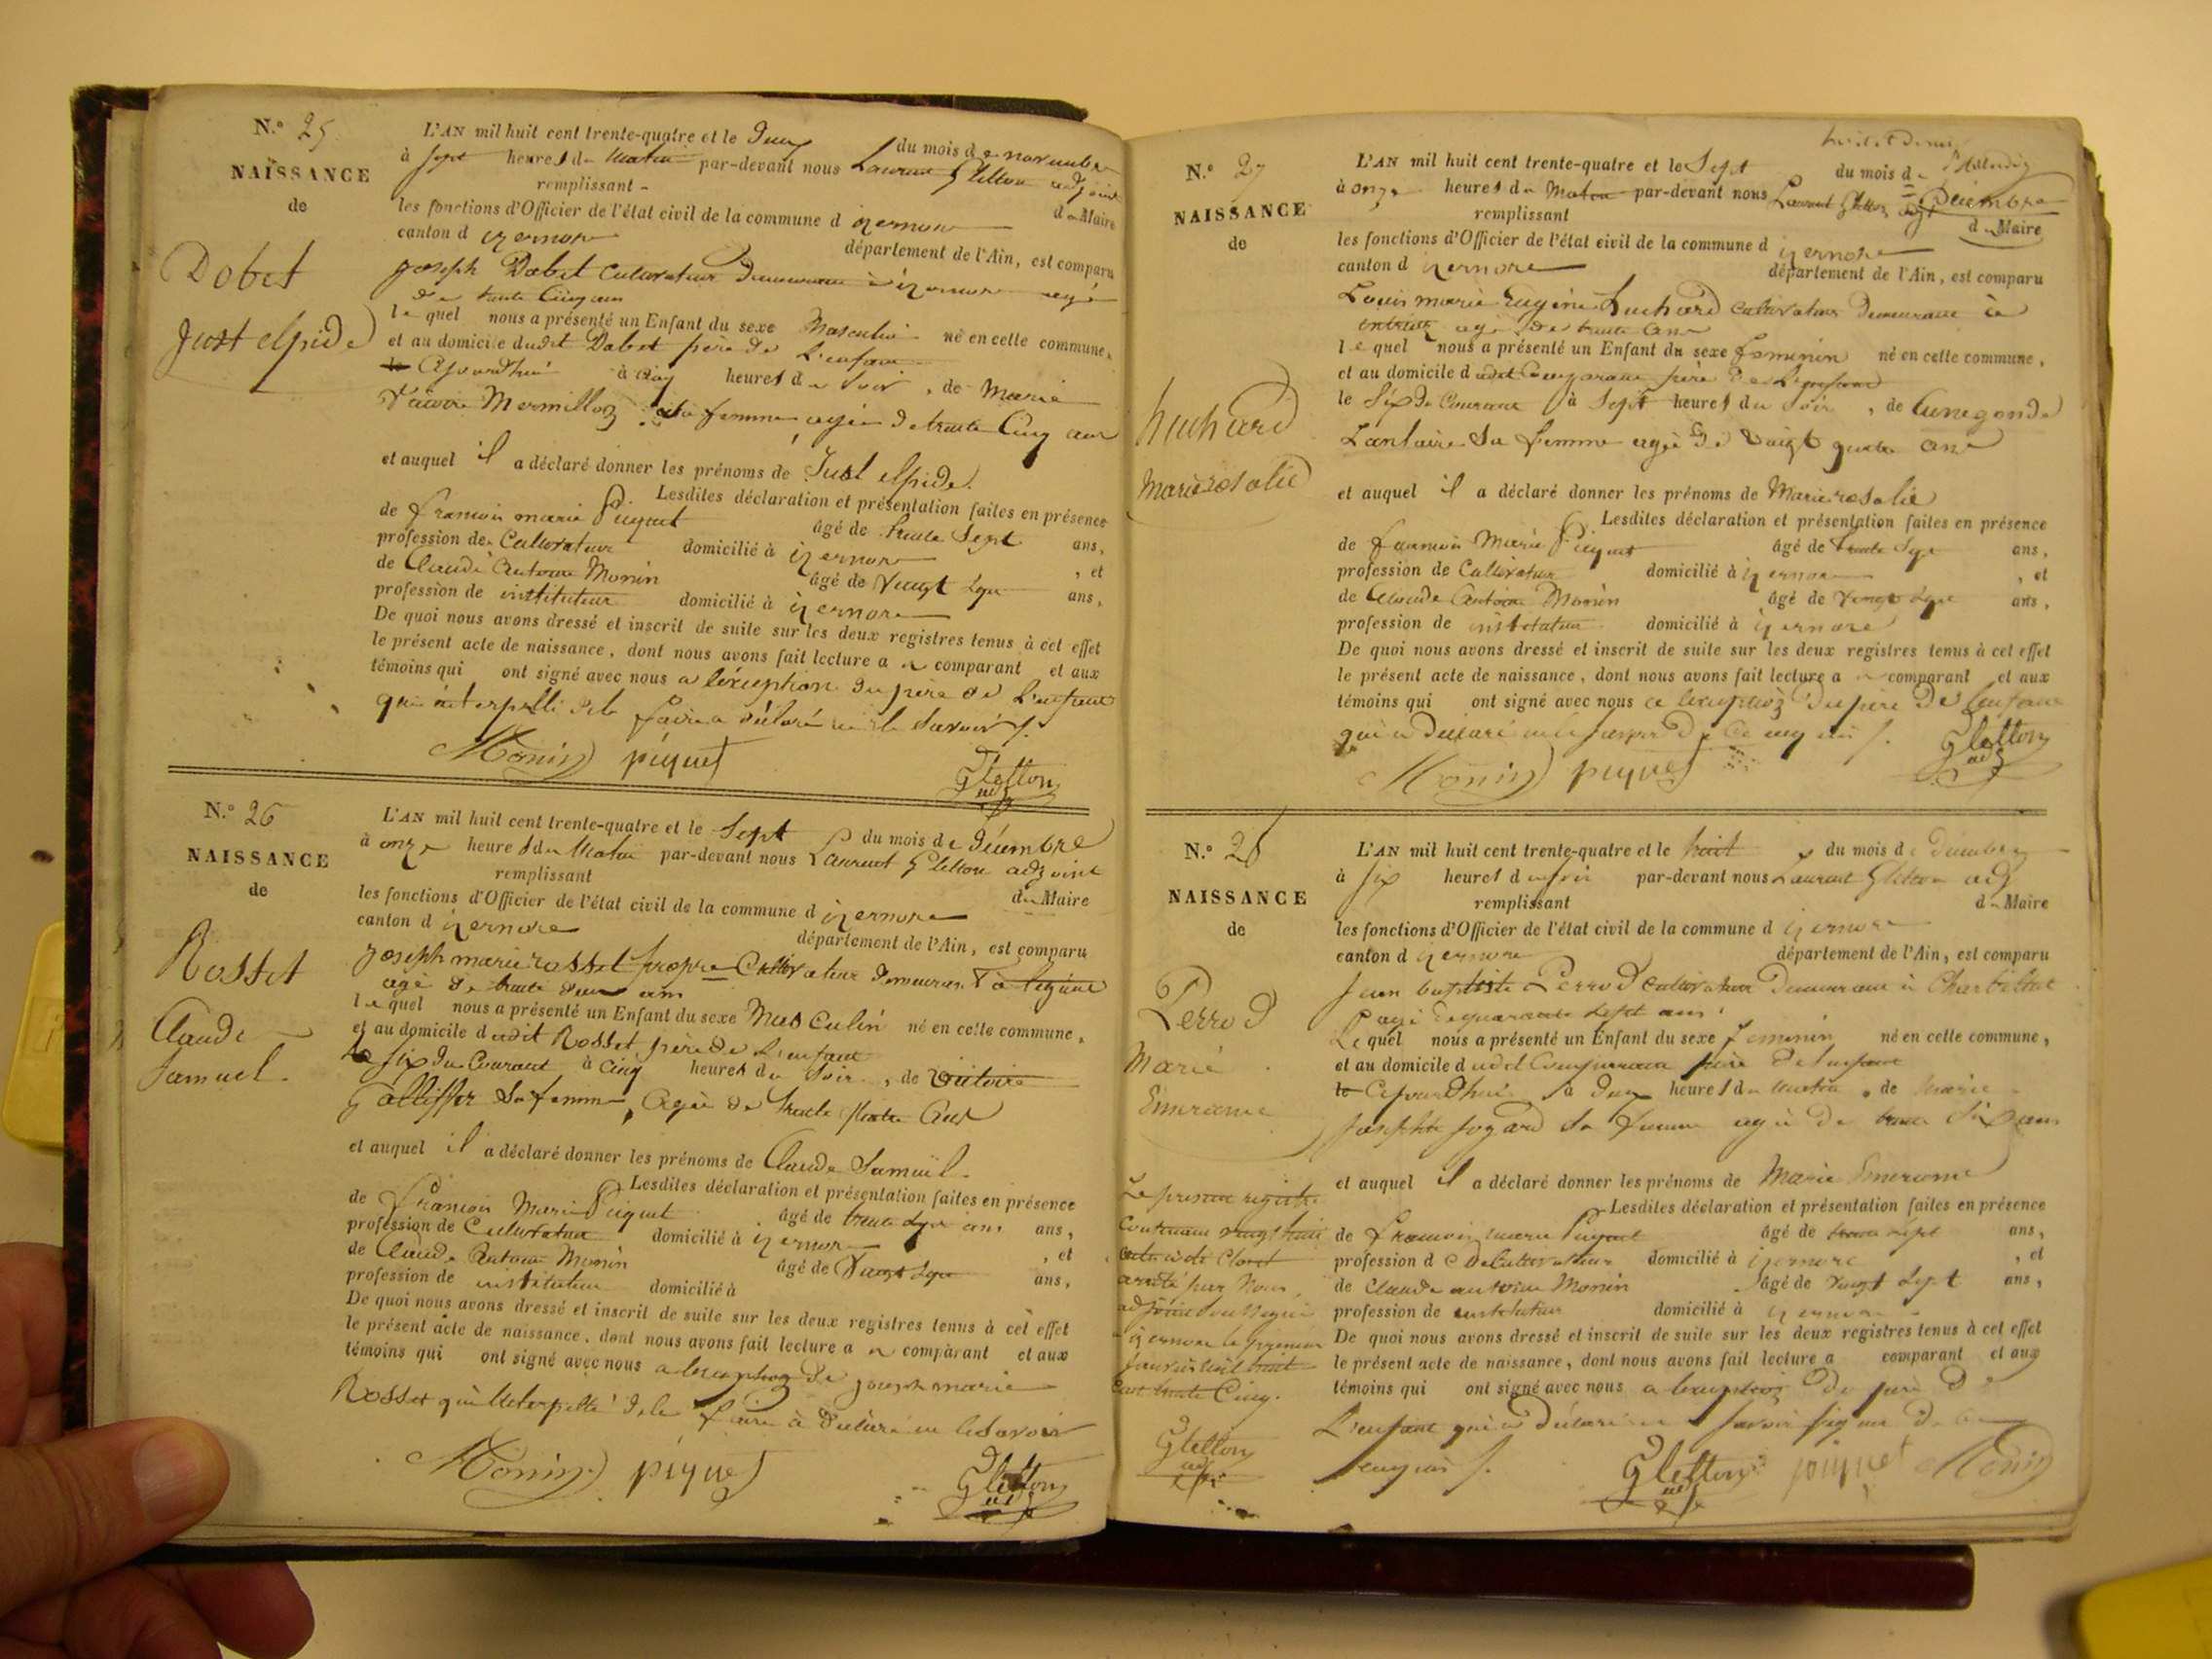 N.° 25
NAISSANCE
de
Dobet
Just elpide
L'AN mil huit cent trente-quatre et le du mois de novembre
à sept heures du Matin par-devant nous Laurent Gletton adjoint
remplissant d u Maire
les fonctions d'Officier de l'état civil de la commune d izernore
canton d izernore département de l'Ain, est comparu
joseph Dobet Cultivateur Demeurant à izernore agé
de trente Cinq ans
le quel nous a présenté un Enfant du sexe Masculin né en cette commune,
et au domicile dudit Dobet père de L'enfant
le Cejourdhui à cinq heures du soir, de Marie
Victoire Mermillon sa femme agée de trente Cinq ans
et auquel il a déclaré donner les prénoms de Just elpide.
Lesdites déclaration et présentation faites en présence
de françois marie Piquet âgé de trente Sept ans,
profession de Cultivateur domicilié à izernore , et
de Claude Antoine Monin âgé de Vingt Sept ans,
profession de instituteur domicilié à izernore
De quoi nous avons dressé et inscrit de suite sur les deux registres tenus à cet effet
le présent acte de naissance, dont nous avons fait lecture a u comparant et aux
témoins qui ont signé avec nous a l'éxception du père de L'enfant
qui interpellé de le faire a déclaré ne le savoir /.
Monin piquet
Gletton
adj
N.° 26
NAISSANCE
de
Rosset
Claude
Samuel.
L'AN mil huit cent trente-quatre et le Sept du mois de Décembre
à onze heures du Matin par-devant nous Laurent Gletton adjoint
remplissant du Maire
les fonctions d'Officier de l'état civil de la commune d izernore
canton d izernore département de l'Ain, est comparu
joseph marie rosset propre Cultivateur demeurant à
agé de trente deux ans
le quel nous a présenté un Enfant du sexe Masculin né en cette commune,
et au domicile dudit Rosset père de L'enfant
le six du Courant à cinq heures du Soir, de Victoire
Sa femme, Agée de trente quatre Ans
et auquel il a déclaré donner les prénoms de Claude Samuel.
Lesdites déclaration et présentation faites en présence
de françois Marie Piquet âgé de trente Sept ans ans,
profession de Cultivateur domicilié à izernore , et
de Claude Antoine Monin âgé de Vingt Sept ans,
profession de instituteur domicilié à
De quoi nous avons dressé et inscrit de suite sur les deux registres tenus à cet effet
le présent acte de naissance, dont nous avons fait lecture a u comparant et aux
témoins qui ont signé avec nous a lexception de joseph marie
Rosset qui interpellé de le faire à déclaré ne le savoir
Monin piquet
Gletton
adj
N.° 27
NAISSANCE
de
huchard
Marie rosalie
L'AN mil huit cent trente-quatre et le Sept du mois de
Décembre
à onze heures du Matin par-devant nous Laurent Gletton adjt
remplissant d u Maire
les fonctions d'Officier de l'état civil de la commune d izernore
canton d izernore département de l'Ain, est comparu
Louis marie Eugène huchard Cultivateur Demeurant à
agé de trente Ans
le quel nous a présenté un Enfant du sexe feminin né en cette commune,
et au domicile dudit Comparant père de L'enfant
le Six du Courant à Sept heures du Soir, de Cunegonde
Lantaire Sa femme agée de vingt quatre Ans
et auquel il a déclaré donner les prénoms de Marie rosalie
Lesdites déclaration et présentation faites en présence
de francois Marie Piquet âgé de trente Sept ans,
profession de Cultivateur domicilié à izernore , et
de Claude Antoine Monin âgé de Vingt Sept ans,
profession de instituteur domicilié à izernore
De quoi nous avons dressé et inscrit de suite sur les deux registres tenus à cet effet
le présent acte de naissance, dont nous avons fait lecture a u comparant et aux
témoins qui ont signé avec nous a lexception du père de Lenfant
qui a déclaré ne le savoir de ce enquis /.
Monin piquet
Gletton
adj
N.° 28
NAISSANCE
de
Perrod
Marie
Emerance
L'AN mil huit cent trente-quatre et le huit du mois de Decembre
à six heures du soir par-devant nous Laurent Gletton adj
remplissant d u Maire
les fonctions d'Officier de l'état civil de la commune d izernore
canton d izernore département de l'Ain, est comparu
jean baptiste Perrod Cultivateur Demeurant à Charbillat
agé de quarante sept ans
Le quel nous a présenté un Enfant du sexe feminin né en cette commune,
et au domicile dudit Comparant père de lenfant
le Cejourdhui à heures du matin, de Marie
josephte jogard Sa femme agée de trente Six ans
et auquel il a déclaré donner les prénoms de Marie Emerance
Lesdites déclaration et présentation faites en présence
de francois marie Piquet âgé de trente Sept ans,
profession de Cultivateur domicilié à izernore , et
de Claude antoine Monin âgé de Vingt Sept ans,
profession de instituteur domicilié à izernore
De quoi nous avons dressé et inscrit de suite sur les deux registres tenus à cet effet
le présent acte de naissance, dont nous avons fait lecture a comparant et aux
témoins qui ont signé avec nous a lexception du père de
L'enfant qui a déclaré ne savoir signer de ce
enquis /.
Gletton piquet Monin
adj
Le present registre
Contenant vingt huit
actes a été Clos et
arrêté par Nous,
adjoint soussigné
à izernore le premier
janvier mil huit
Cent trente Cinq.
Gletton
adj